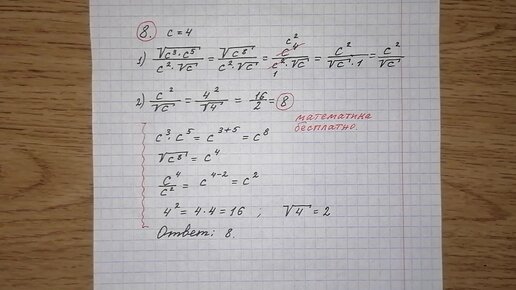 8. c=4
1) √(c³·c⁵)/(c²·√c) = √(c⁸)/(c²·√c) = c⁴/(c²·√c) = c²/(√c·1) = c²/√c
c²
1
2) c²/√c = 4²/√4 = 16/2 = 8
математика
бесплатно.
c³·c⁵ = c³⁺⁵ = c⁸
√(c⁸) = c⁴
c⁴/c² = c⁴⁻² = c²
4² = 4·4 = 16 ; √4 = 2
Ответ: 8.